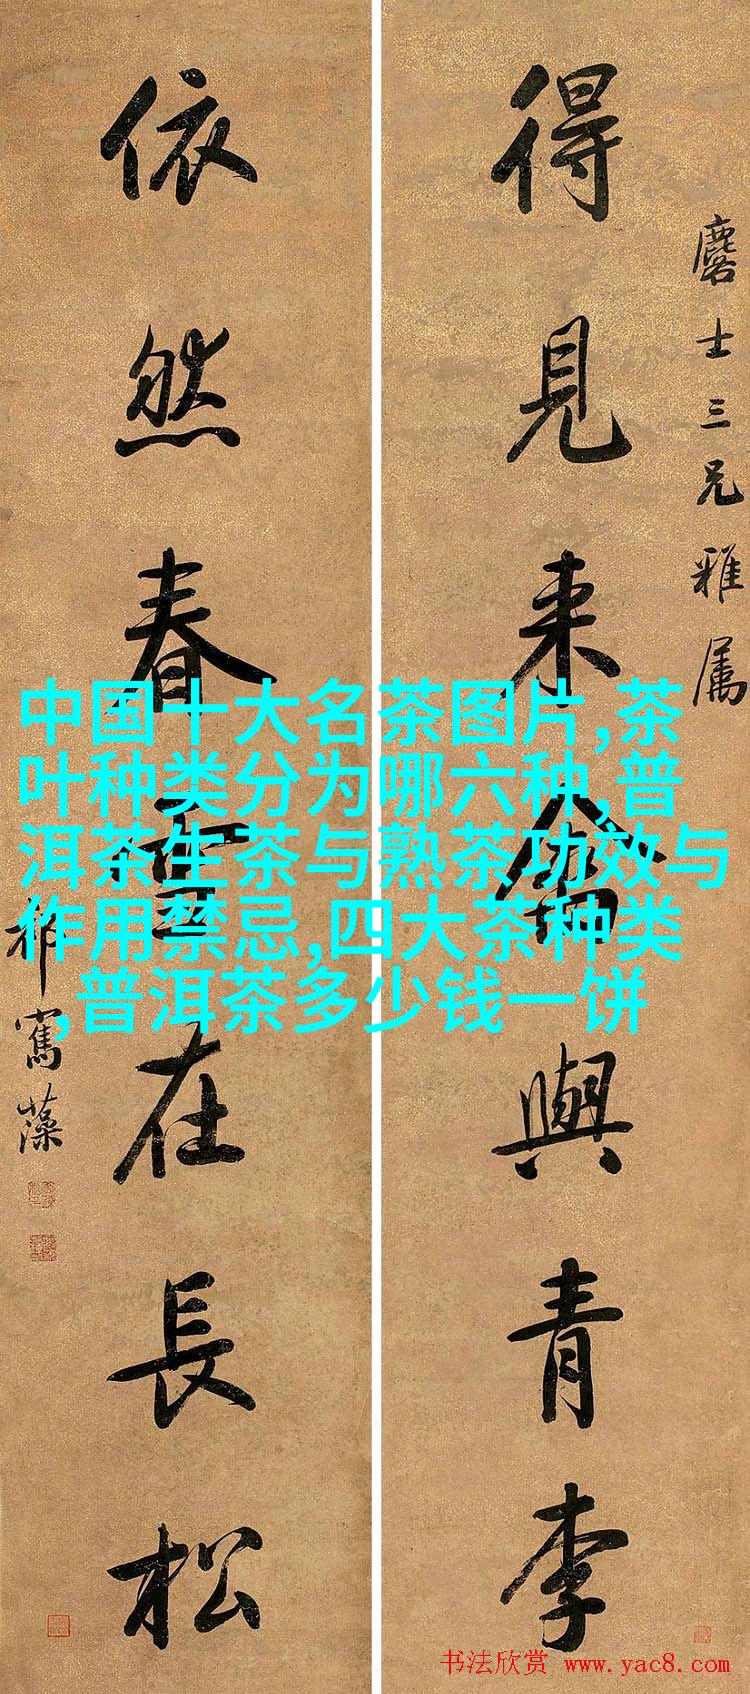 麐士三兄雅属
得見来禽與青李
依然春雪在長松
祁寯藻
中国十大名茶图片,茶
叶种类分为哪六种,普
洱茶生茶与熟茶功效与
作用禁忌,四大茶种类
,普洱茶多少钱一饼
书法欣赏 www.yac8.com